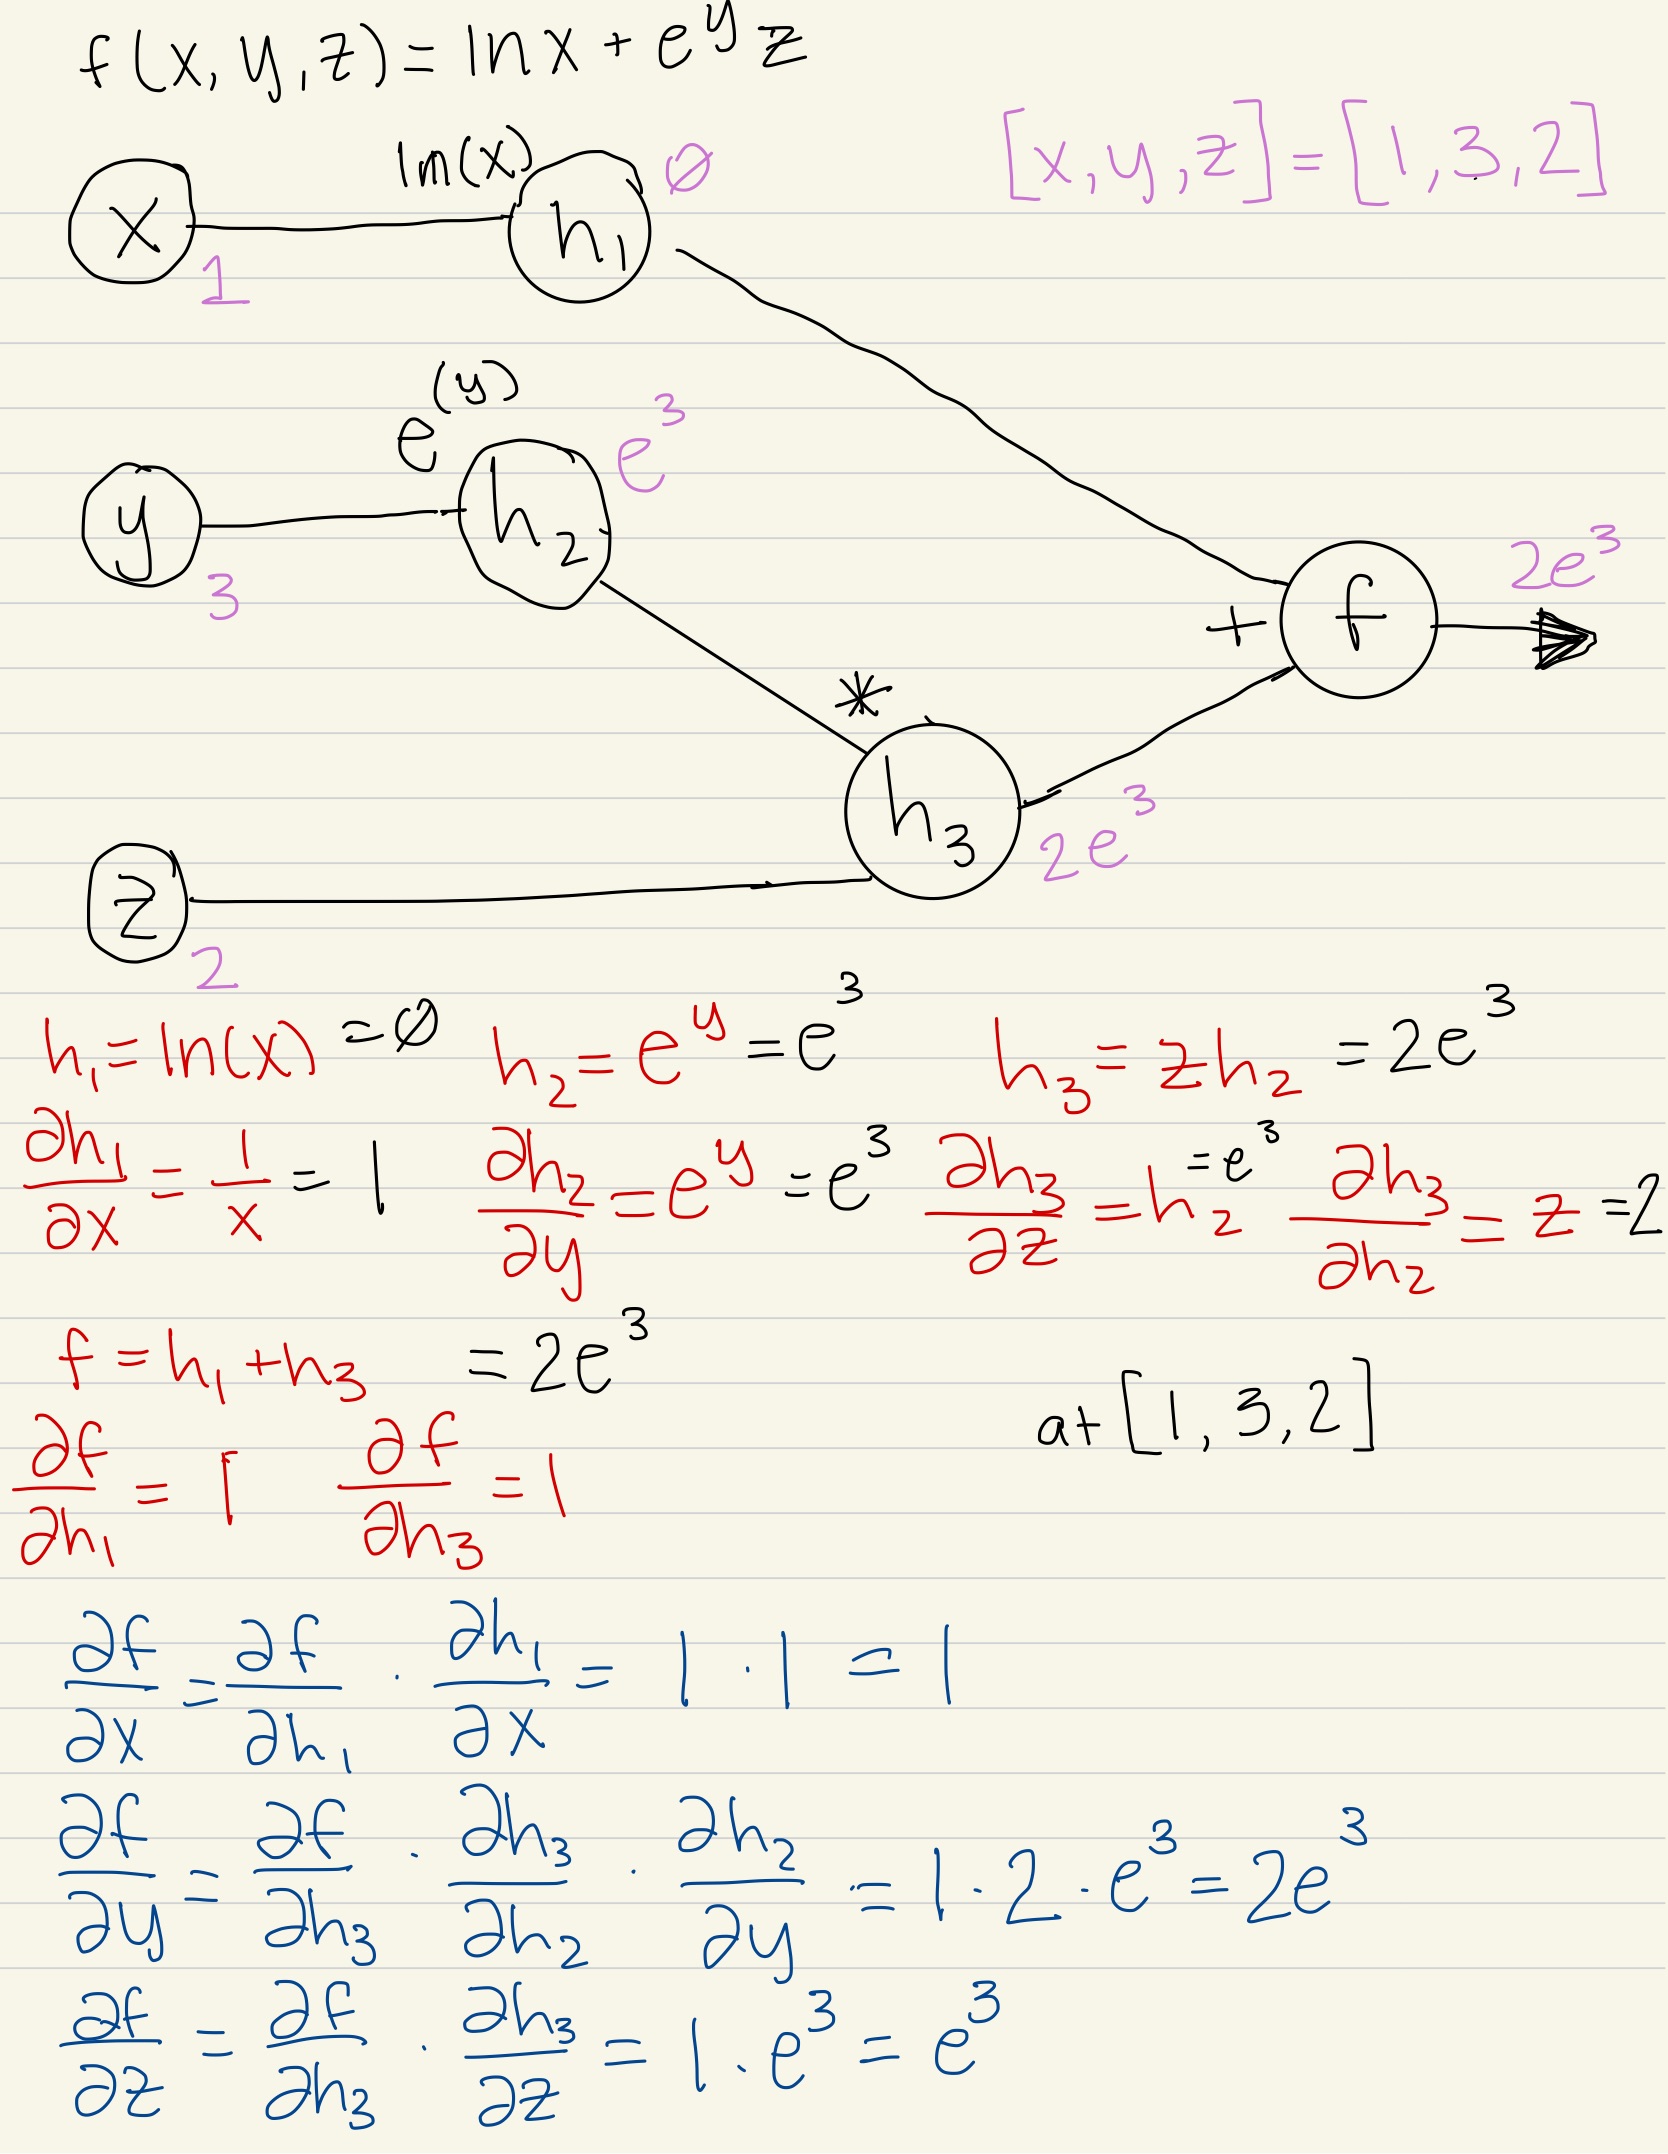 f(x, y, z) = ln x + e^y z
[x, y, z] = [1, 3, 2]
ln(x)
x
h₁
∅
1
e^(y)
e³
y
h₂
3
2e³
+
f
*
h₃
2e³
z
2
h₁ = ln(x) = ∅ h₂ = e^y = e³ h₃ = z h₂ = 2e³
∂h₁/∂x = 1/x = 1 ∂h₂/∂y = e^y = e³ ∂h₃/∂z = h₂ = e³ ∂h₃/∂h₂ = z = 2
f = h₁ + h₃ = 2e³
at [1, 3, 2]
∂f/∂h₁ = 1 ∂f/∂h₃ = 1
∂f/∂x = ∂f/∂h₁ · ∂h₁/∂x = 1 · 1 = 1
∂f/∂y = ∂f/∂h₃ · ∂h₃/∂h₂ · ∂h₂/∂y = 1 · 2 · e³ = 2e³
∂f/∂z = ∂f/∂h₃ · ∂h₃/∂z = 1 · e³ = e³